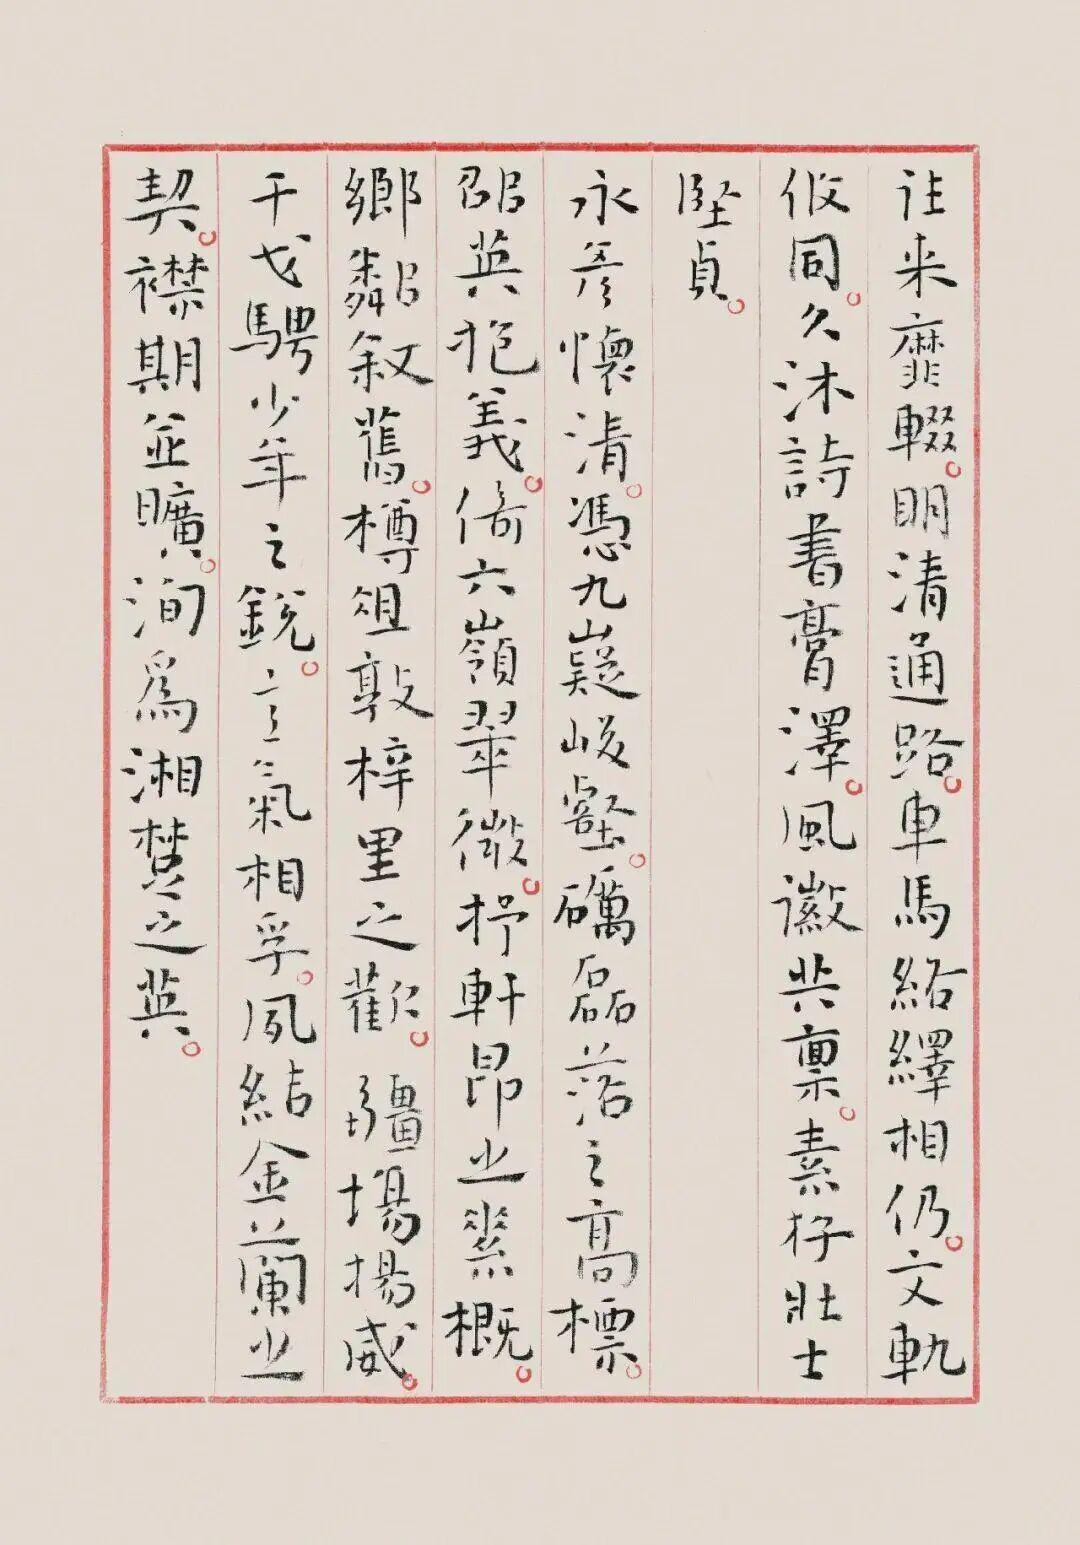 往来靡輟。明清通路。車馬絡繹相仍。文軌
攸同。久沐詩書膏澤。風徽共稟。素存壮士
堅貞。
永彦懷清。憑九嶷峻壑。礪磊落之高標。
邵英抱義。倚六嶺翠微。抒軒昂之素概。
鄉鄰叙舊。樽俎敦梓里之歡。疆場揚威。
干戈騁少年之鋭。意氣相孚。夙結金蘭之
契。襟期並曠。洵爲湘楚之英。